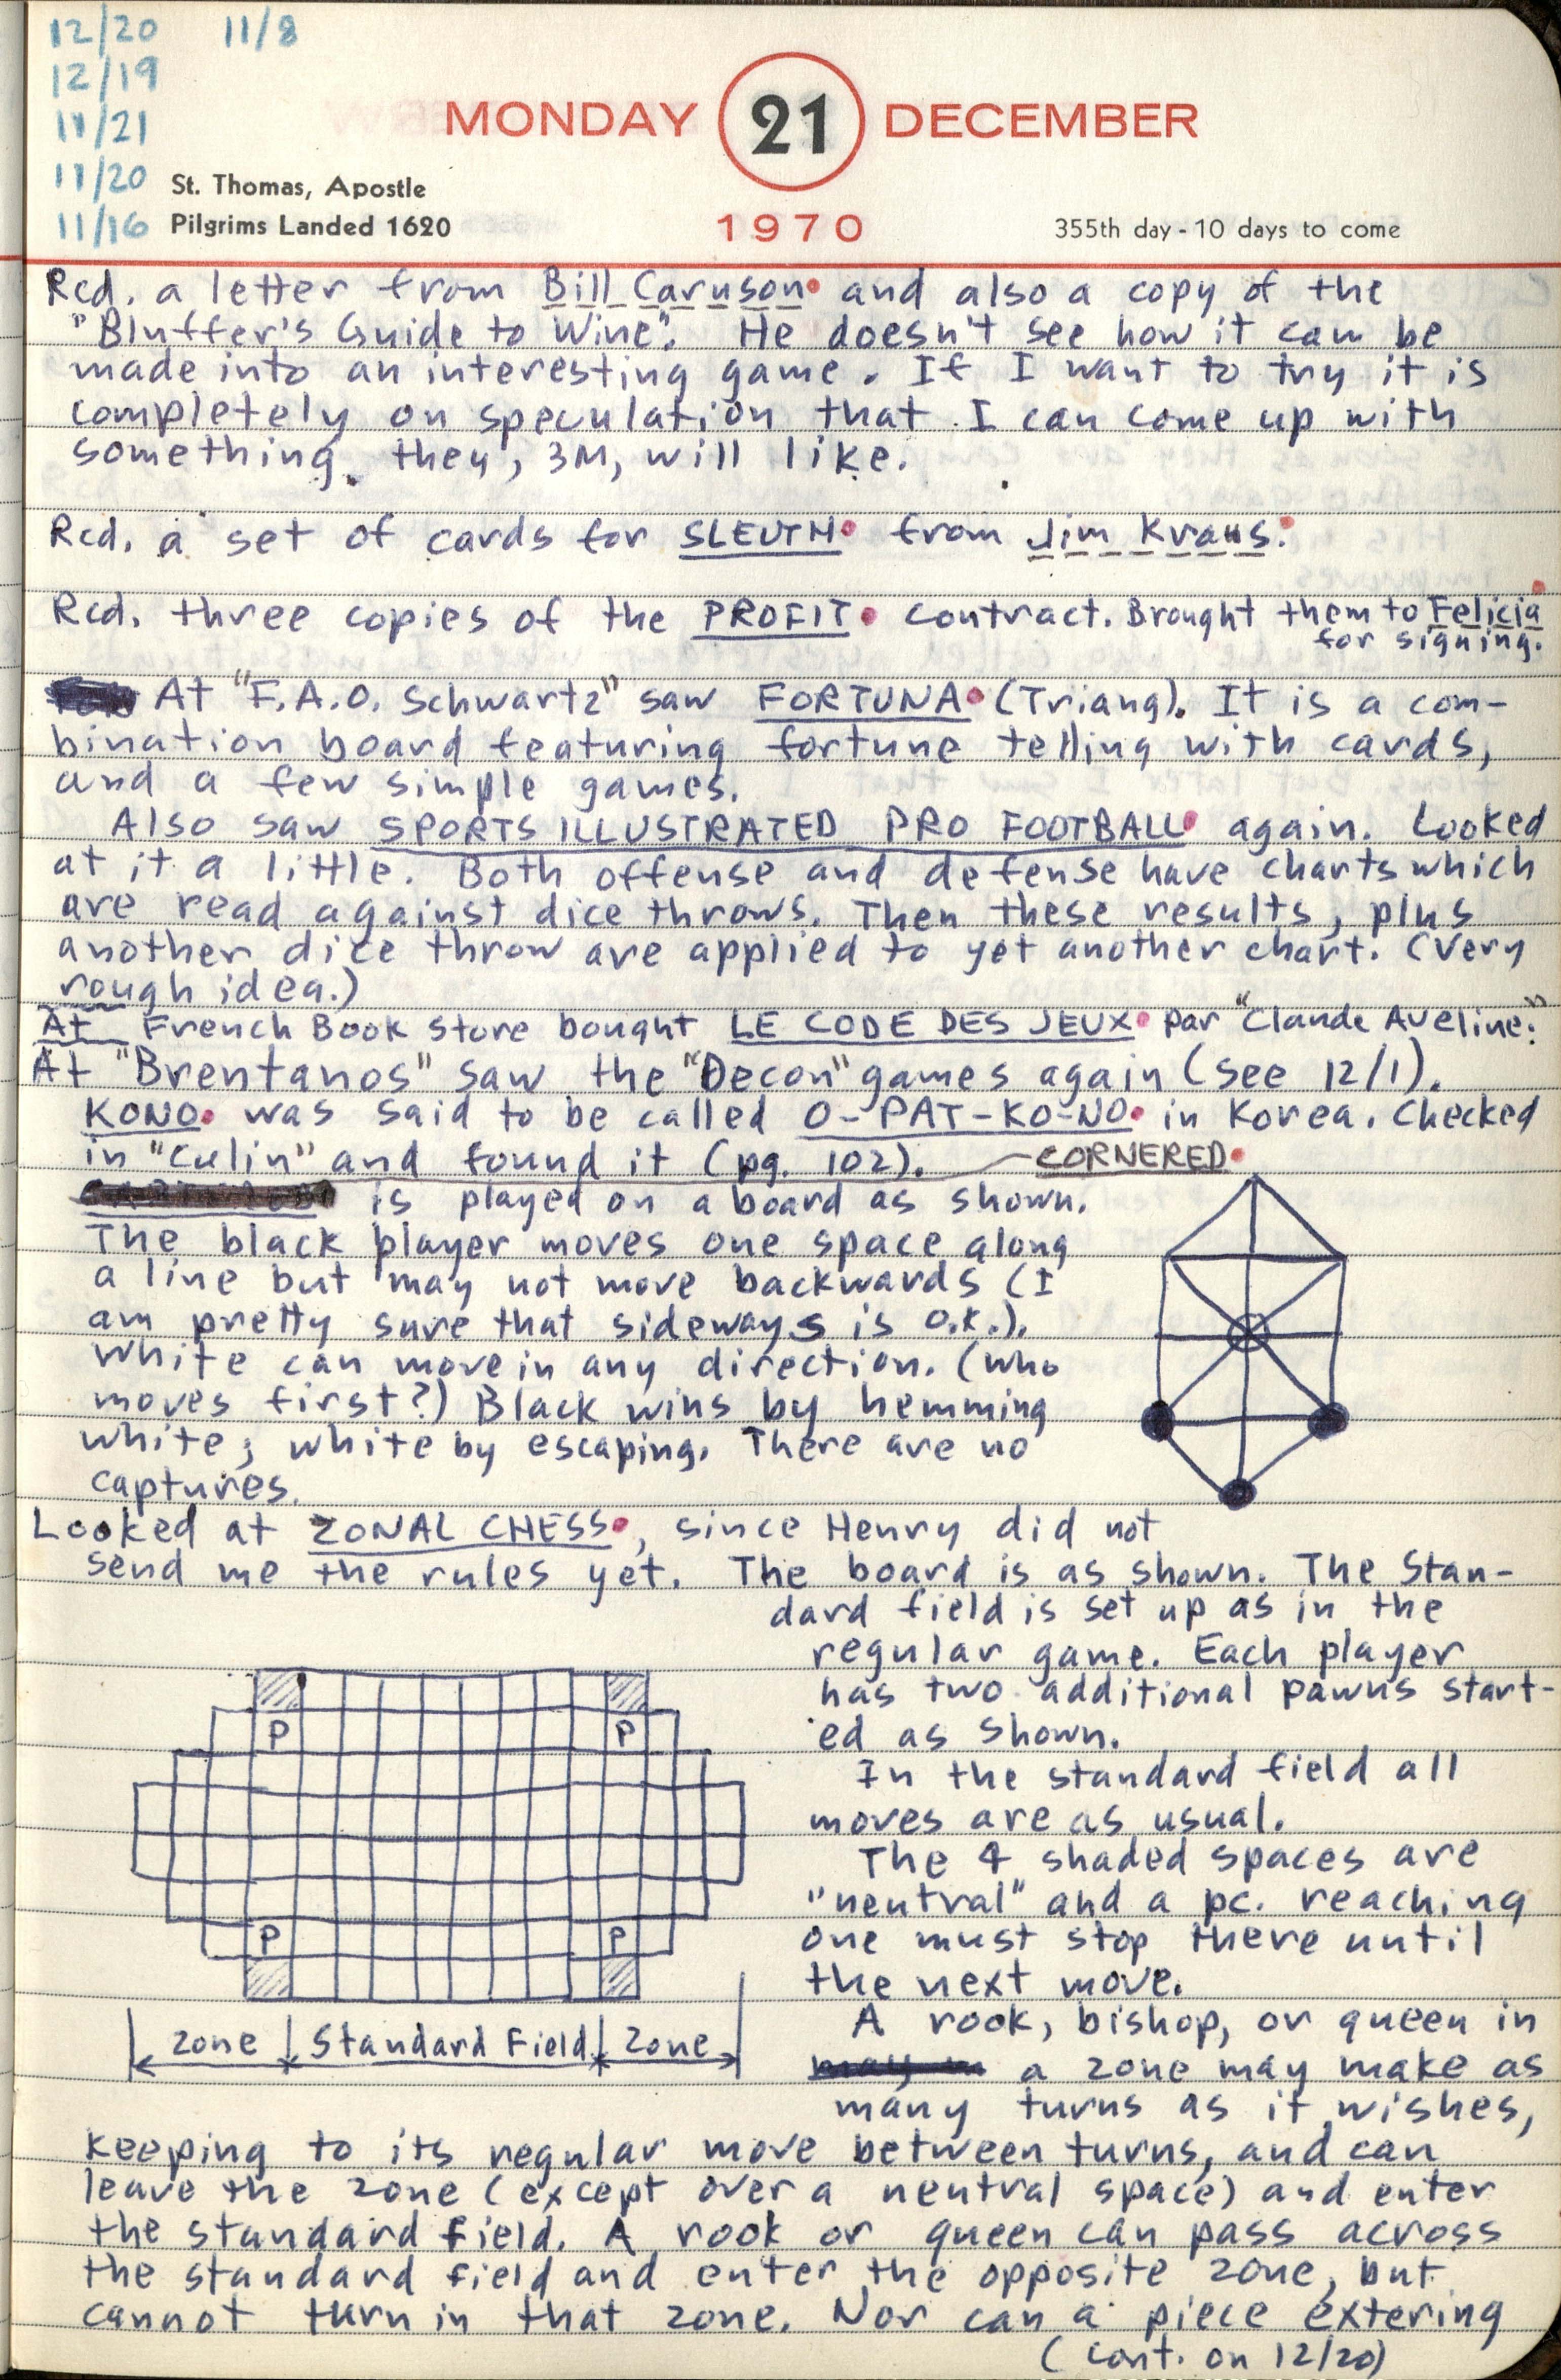 12/20 11/8
12/19
11/21
11/20
11/16
MONDAY 21 DECEMBER
St. Thomas, Apostle
Pilgrims Landed 1620
1970
355th day - 10 days to come
Rcd. a letter from Bill Caruson and also a copy of the
"Bluffer's Guide to Wine". He doesn't see how it can be
made into an interesting game. If I want to try it is
completely on speculation that I can come up with
something they, 3M, will like.
Rcd. a set of cards for SLEUTH from Jim Kraus.
Rcd. three copies of the PROFIT contract. Brought them to Felicia
for signing.
At "F.A.O. Schwartz" saw FORTUNA (Triang). It is a com-
bination board featuring fortune telling with cards,
and a few simple games.
Also saw SPORTS ILLUSTRATED PRO FOOTBALL again. Looked
at it a little. Both offense and defense have charts which
are read against dice throws. Then these results, plus
another dice throw are applied to yet another chart. (Very
rough idea.)
At French Book store bought LE CODE DES JEUX par "Claude Aveline."
At "Brentanos" saw the "Decon" games again (see 12/1).
KONO was said to be called O-PAT-KO-NO in Korea. Checked
in "Culin" and found it (pg. 102).
CORNERED
is played on a board as shown.
The black player moves one space along
a line but may not move backwards (I
am pretty sure that sideways is o.k.).
White can move in any direction. (Who
moves first?) Black wins by hemming
white; white by escaping. There are no
captures.
Looked at ZONAL CHESS, since Henry did not
send me the rules yet. The board is as shown. The Stan-
dard field is set up as in the
regular game. Each player
has two additional pawns start-
ed as shown.
In the standard field all
moves are as usual.
The 4 shaded spaces are
"neutral" and a pc. reaching
one must stop there until
the next move.
A rook, bishop, or queen in
a zone may make as
many turns as it wishes,
P P
P P
Zone Standard Field Zone
keeping to its regular move between turns, and can
leave the zone (except over a neutral space) and enter
the standard field. A rook or queen can pass across
the standard field and enter the opposite zone, but
cannot turn in that zone. Nor can a piece extering
(cont. on 12/20)